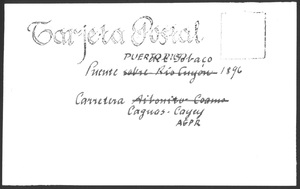 Tarjeta Postal
PUERTO RICO
de Tabaco
Puente sobre Rio Cuyón 1896
Carretera Aibonito-Coamo
Caguas-Cayey
AGPR